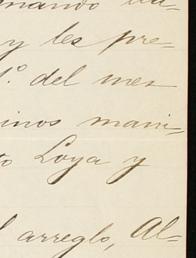 mando
y les pre-
1º. del mes
inos mani-
to Loya y
l arreglo, Al-